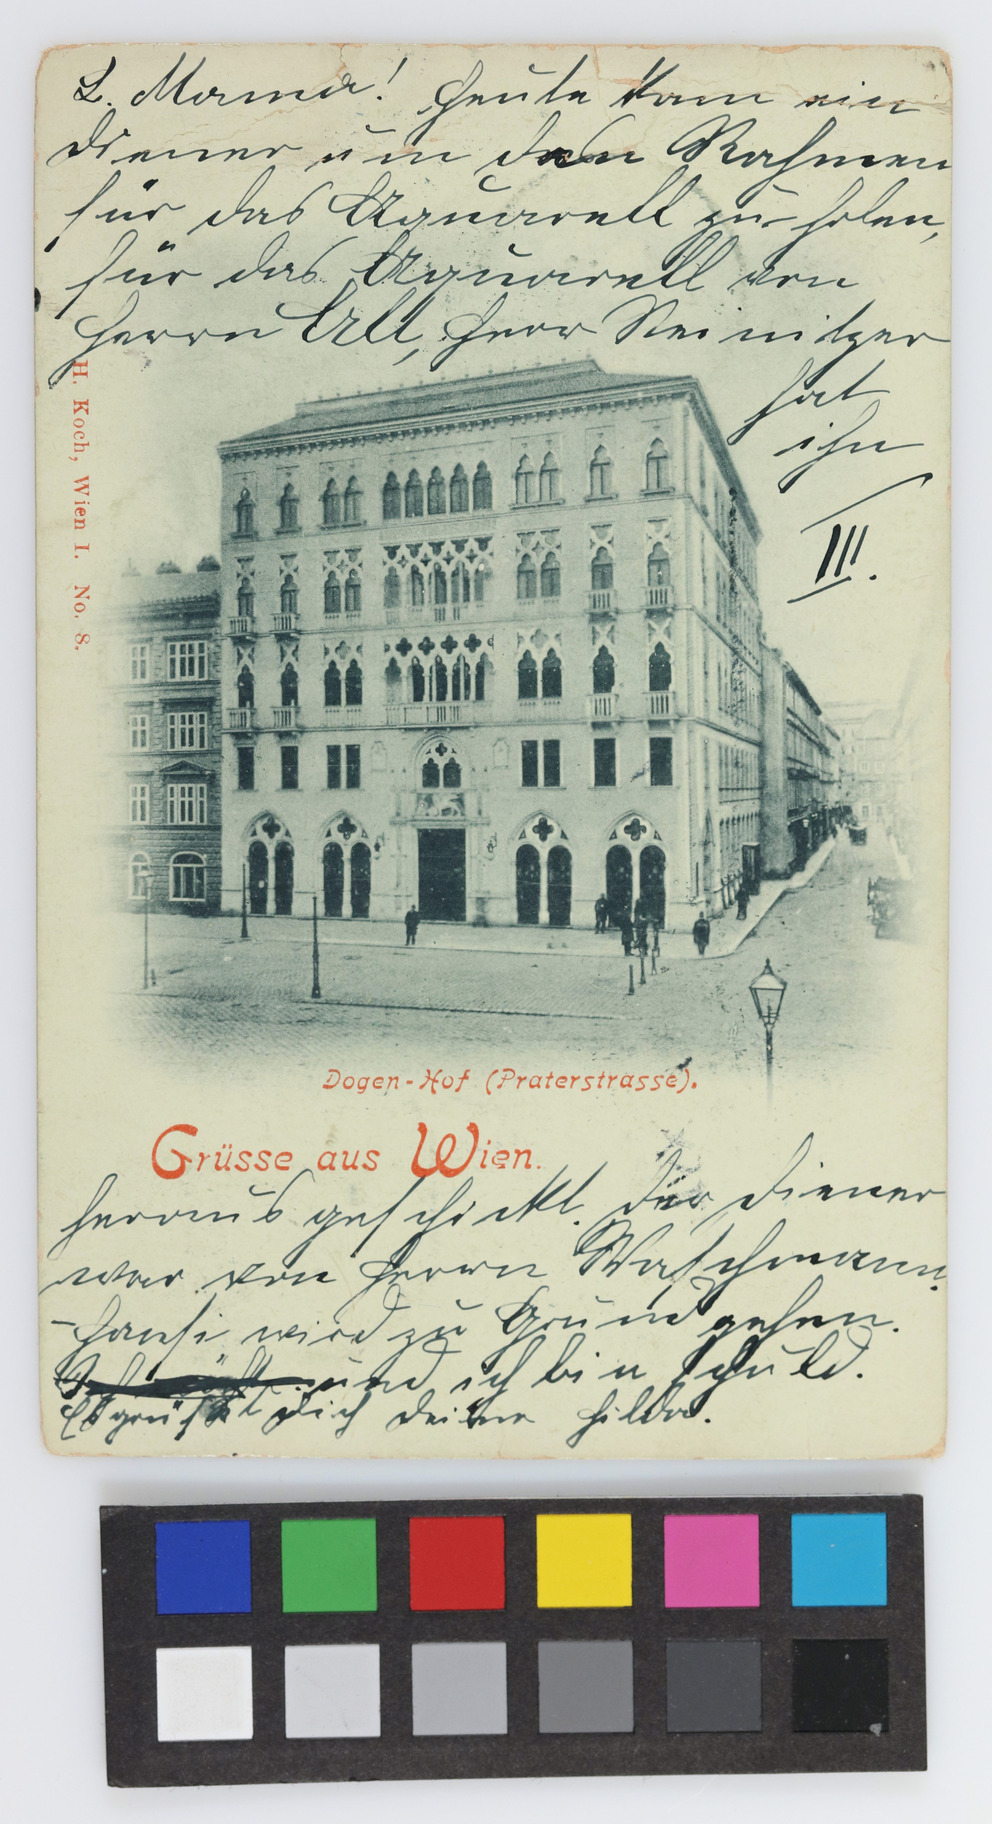 L. Mama! Heute kam ein
Diener um den Rahmen
für das Aquarell zu holen,
für das Aquarell von
Herrn Alt, Herr Neinitzer
hat
ihn
III.
H. Koch, Wien I. No. 8.
Dogen-Hof (Praterstrasse).
Grüsse aus Wien.
heraus geschickt. Der Diener
war von Herrn Waschmann.
Hansi wird zu Grund gehen.
und ich bin schuld.
Es grüßt Dich Deine Hilda.